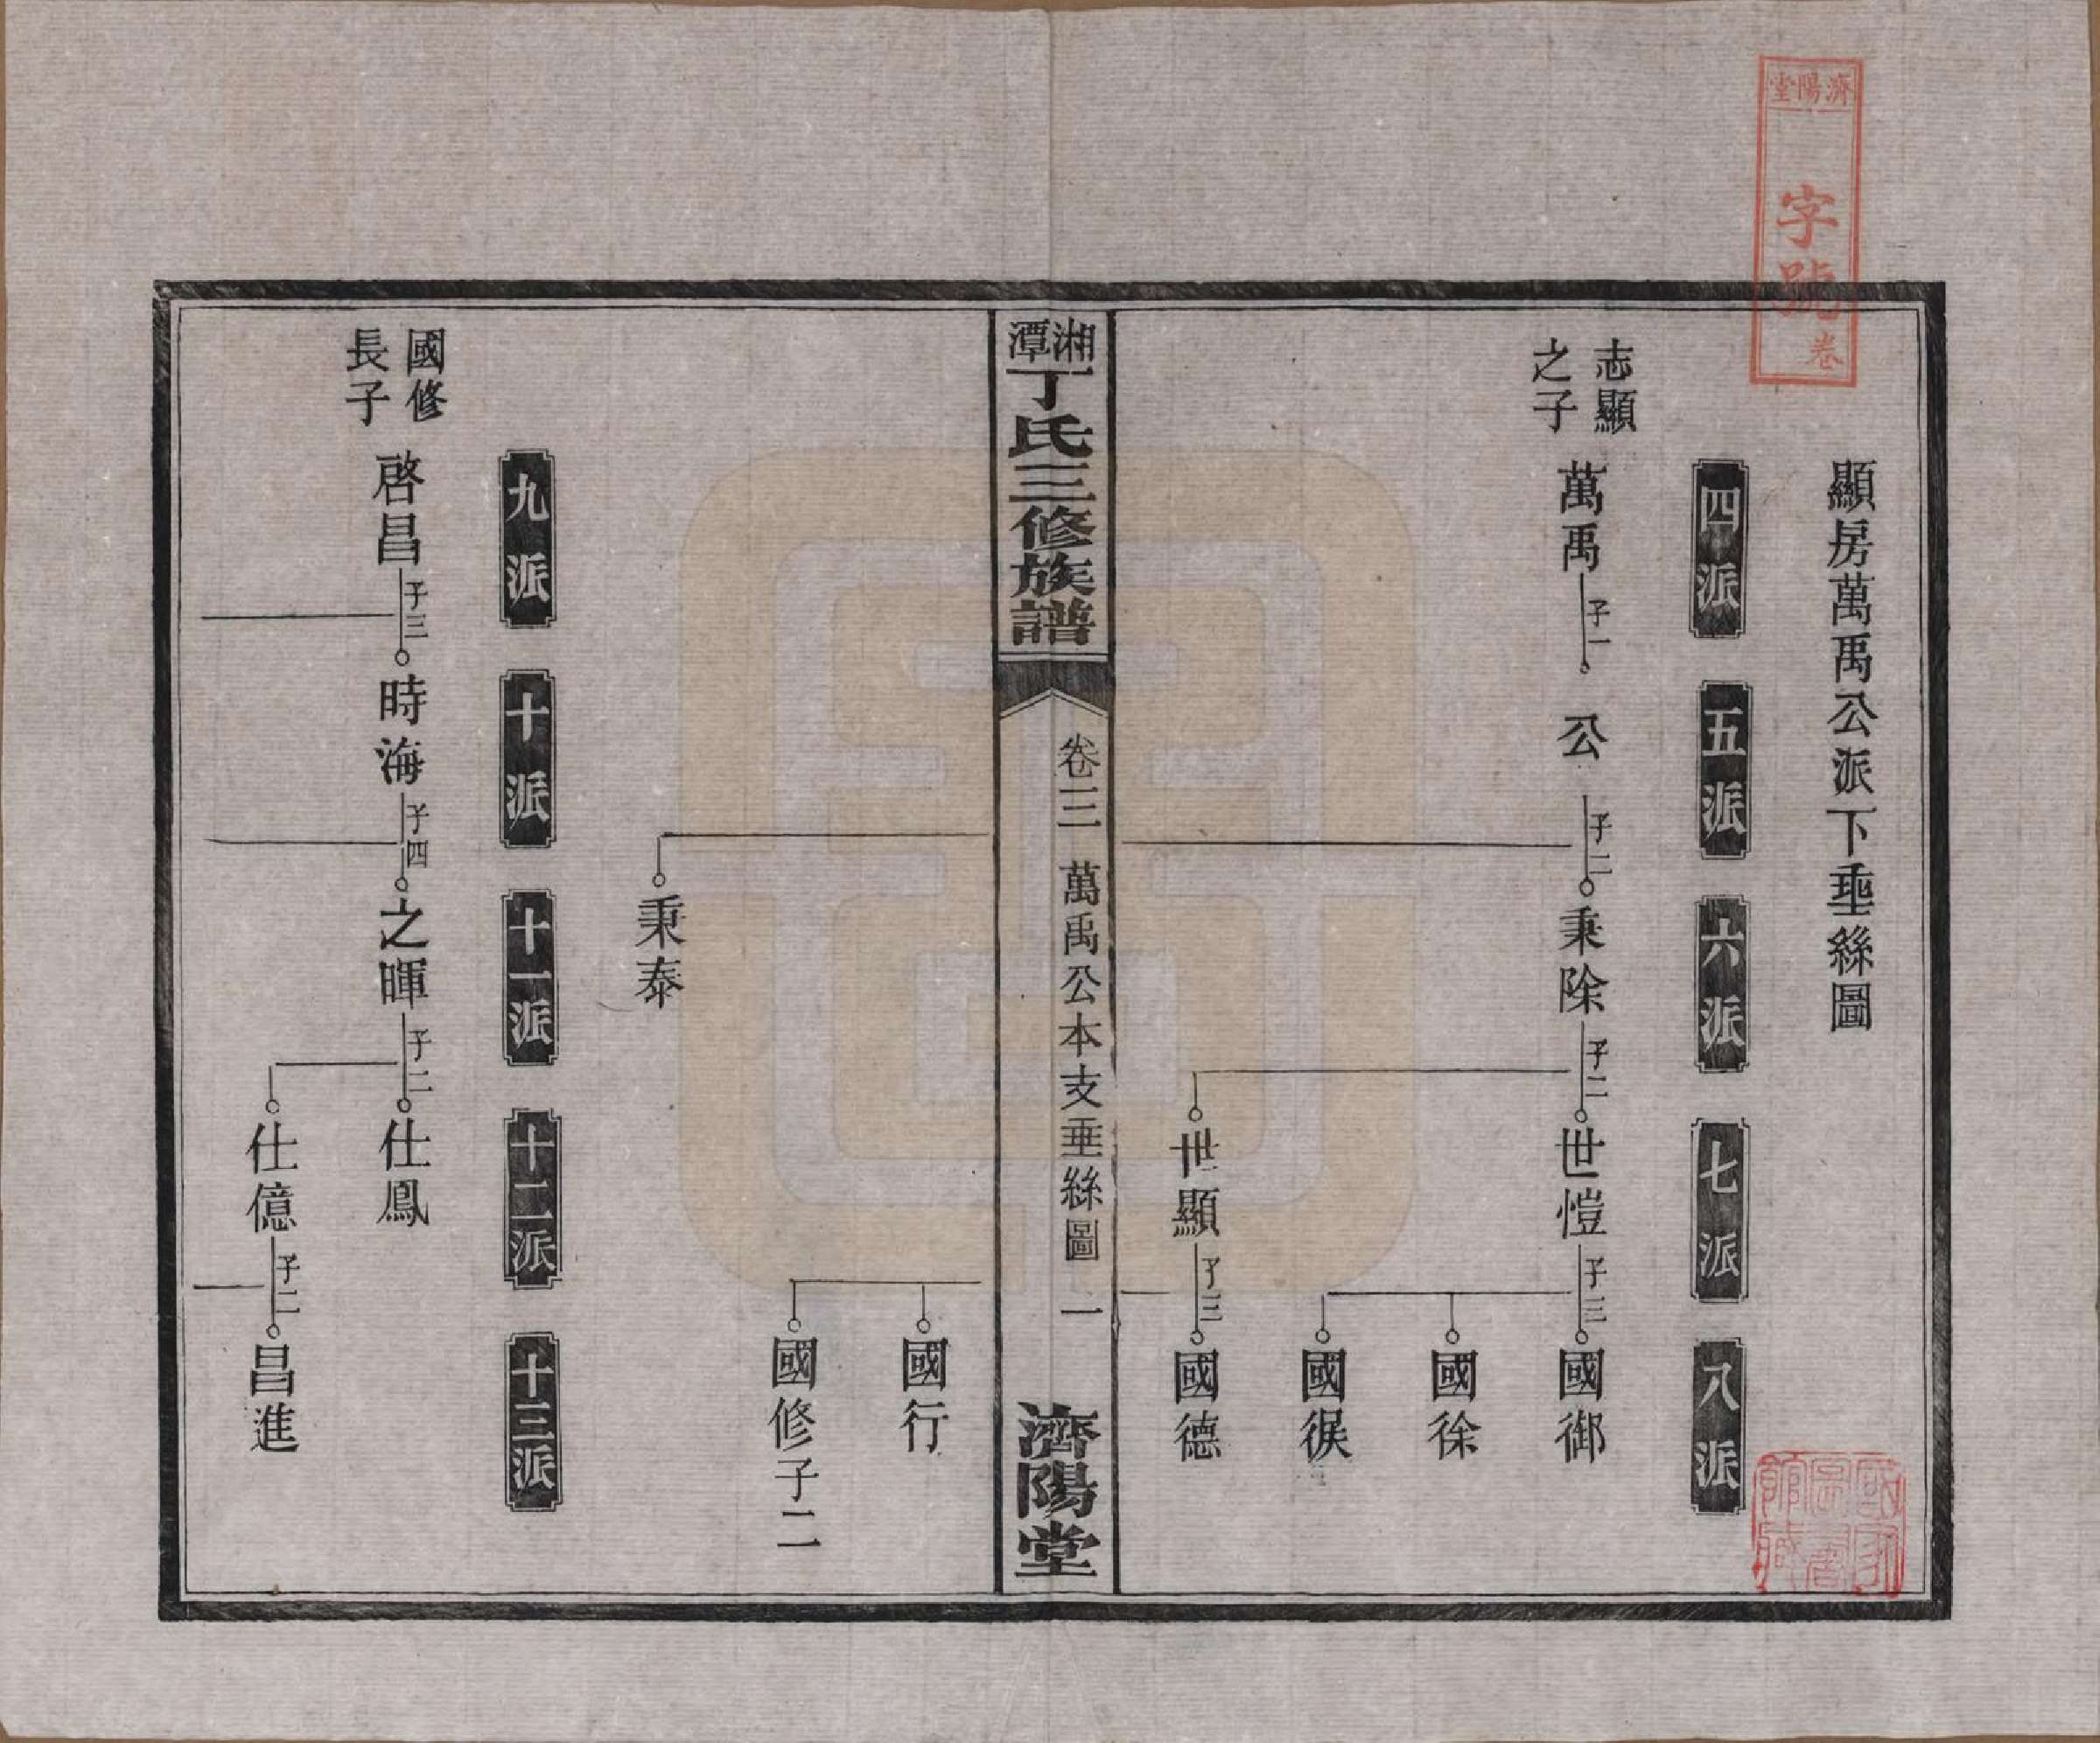 濟陽堂
字號
卷
顯房萬禹公派下垂絲圖
四派
五派
六派
七派
八派
志顯
之子
萬禹
子一
公
子二
秉除
子二
世愷
子三
國御
國徐
世顯
子三
國德
湘潭丁氏三修族譜
卷三
萬禹公本支垂絲圖
一
濟陽堂
國行
國修子二
秉泰
九派
十派
十一派
十二派
十三派
國修
長子
啓昌
子三
時海
子四
之暉
子二
仕鳳
仕億
子二
昌進
國家圖書館藏